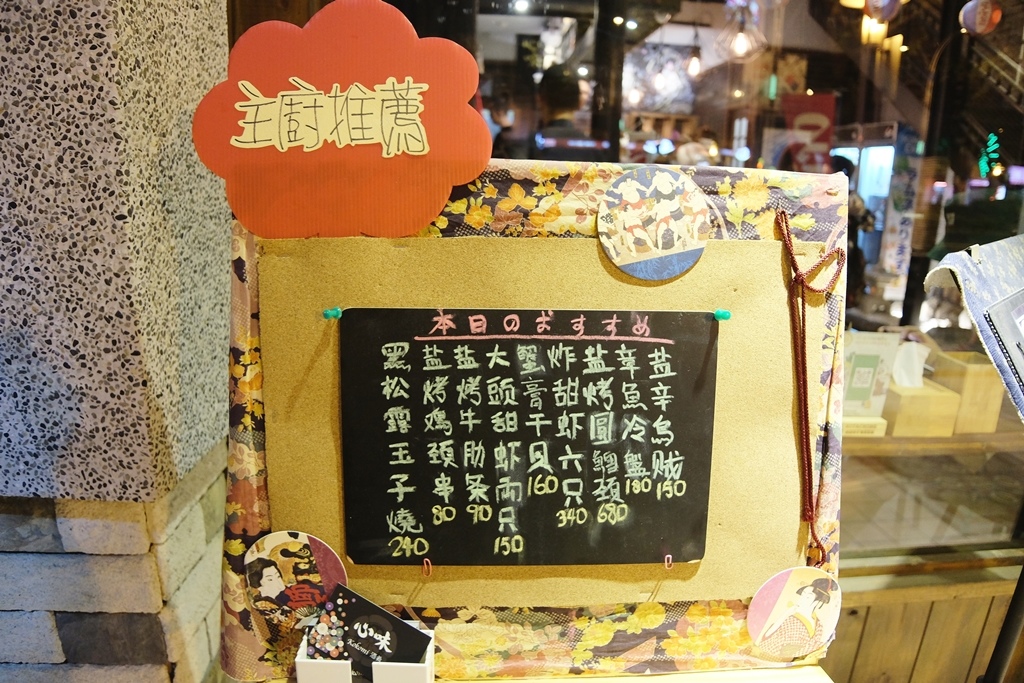 主廚推薦
本日のおすすめ
黑松露玉子燒
240
盐烤鸡頸串
80
盐烤牛肋条
90
大頭甜虾兩只
150
蟹膏干贝
160
炸甜虾六只
340
盐烤圓鱈頸
680
辛魚冷盤
180
盐辛烏贼
150
心味
Kokomi